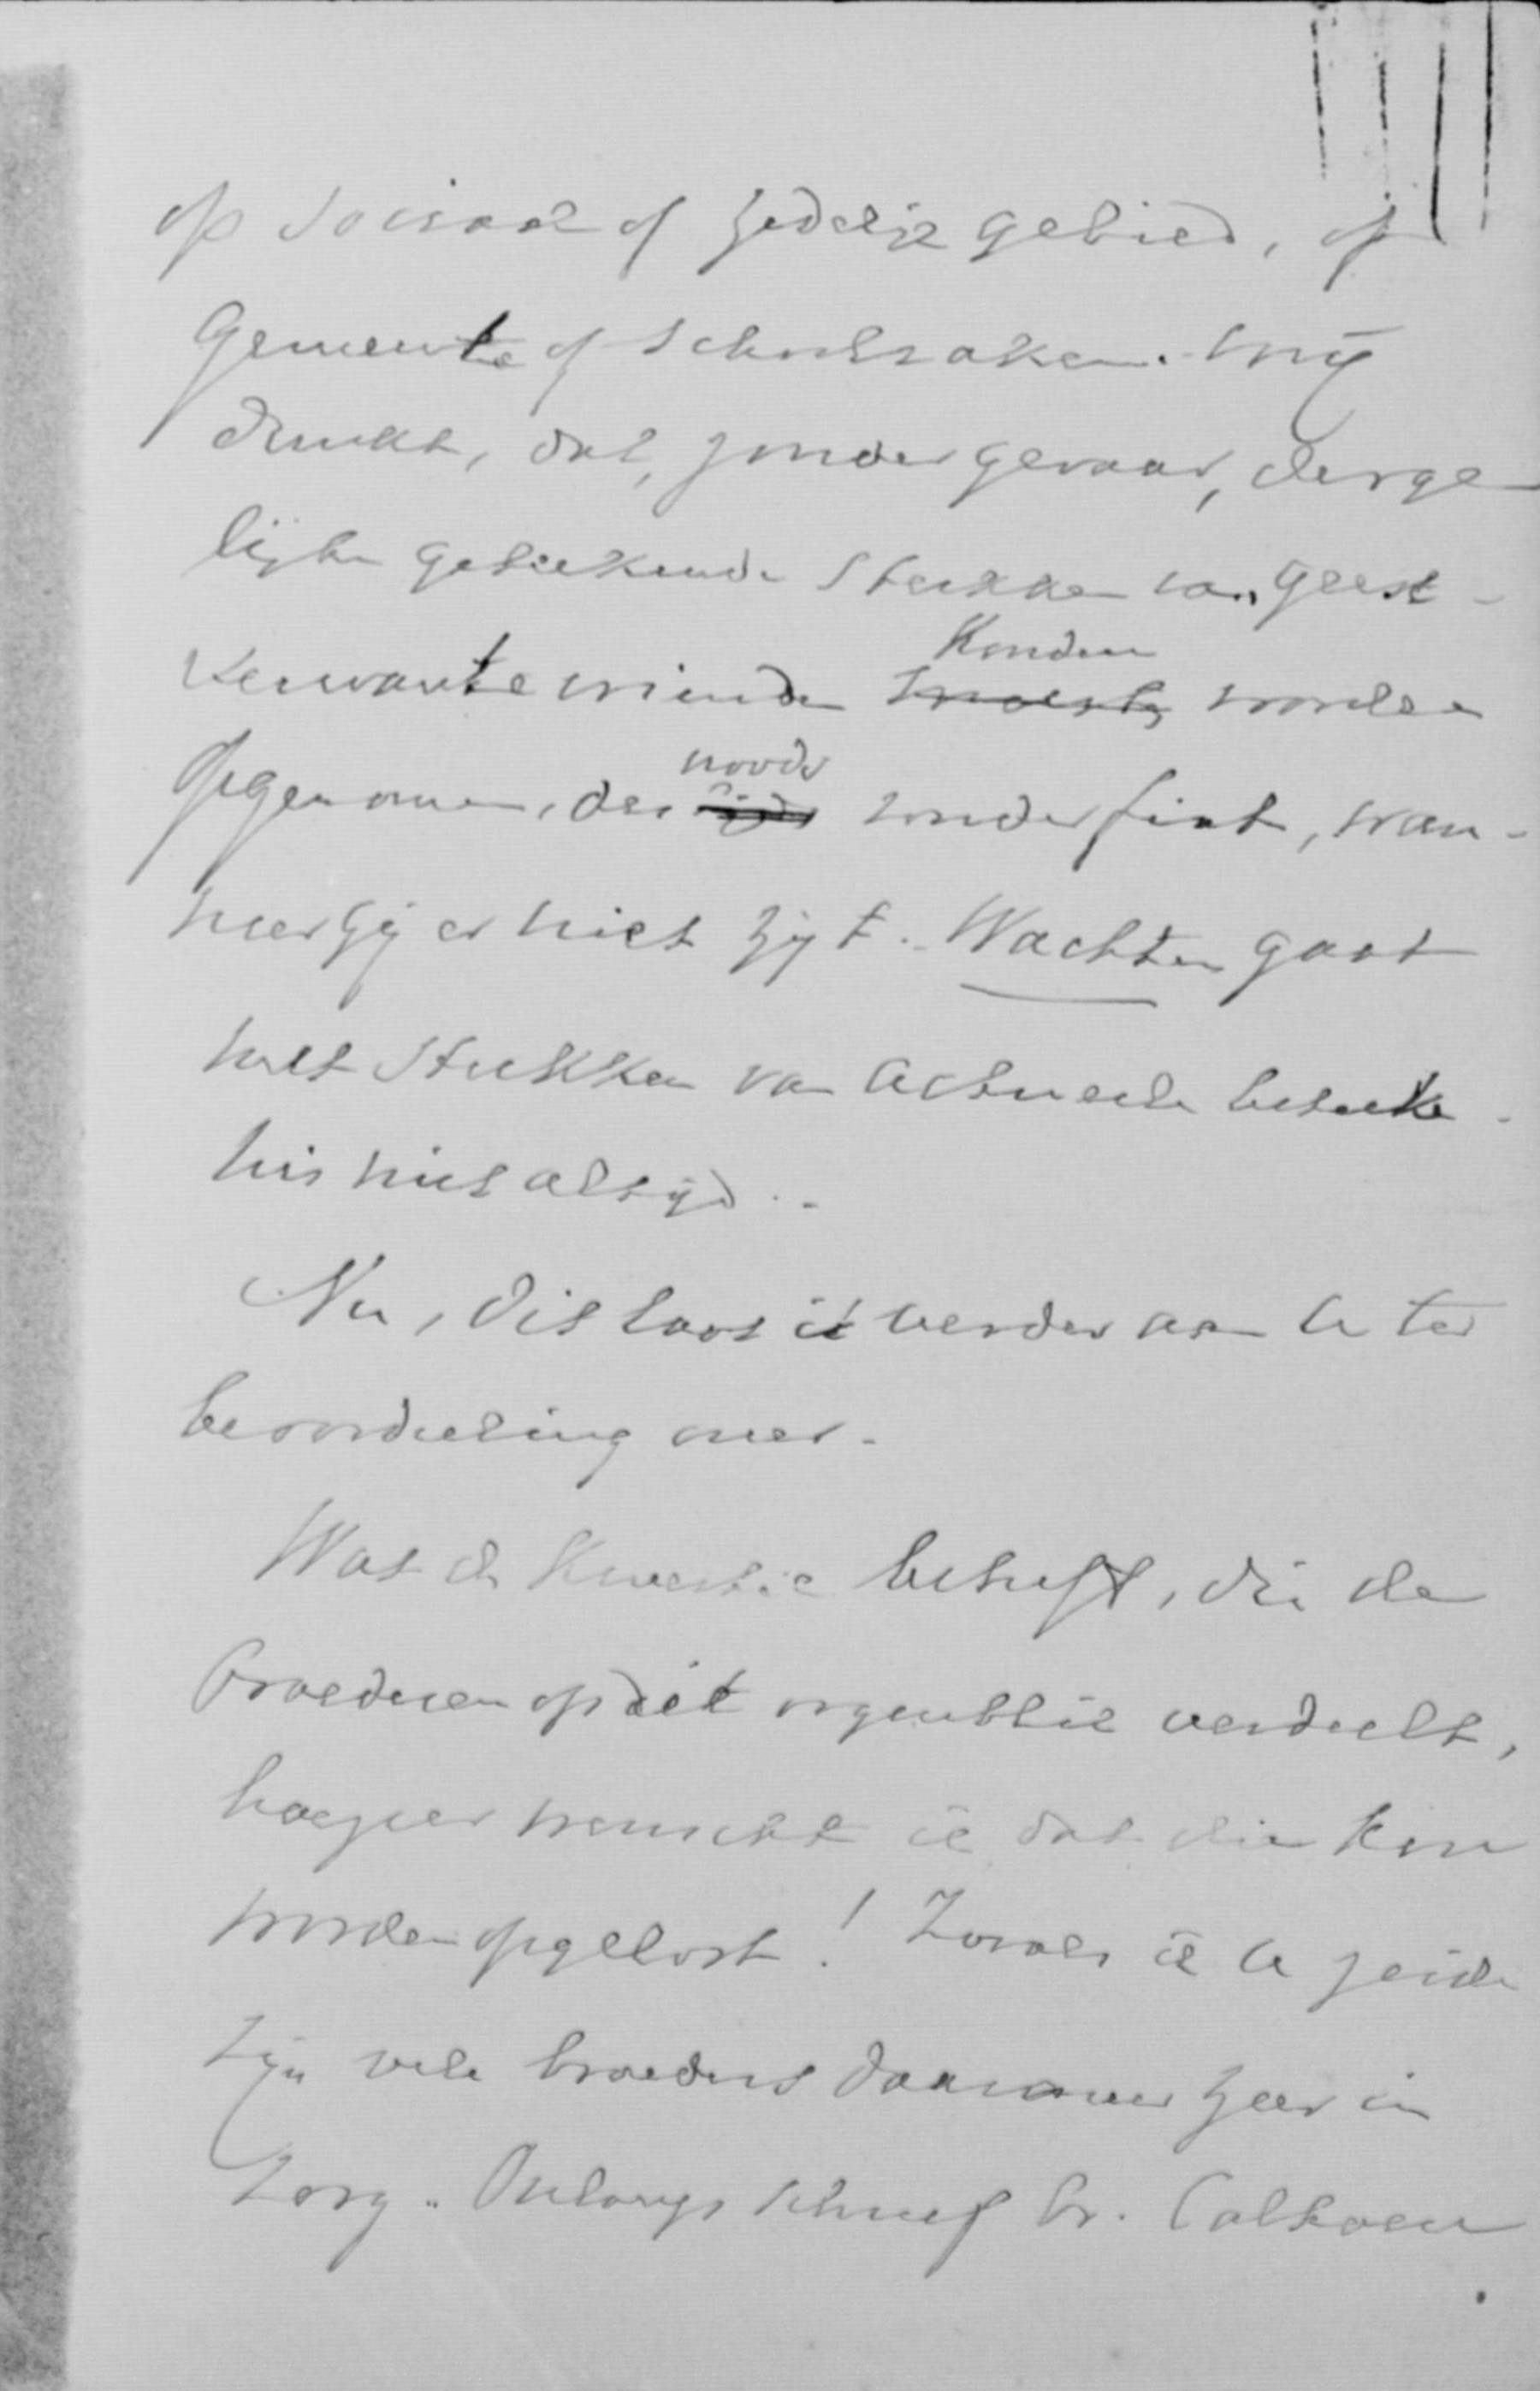 op sociaal of zedelijk gebied, op
Gemeente of schoolzaken. Mij
dunkt, dat, zonder gevaar, derge
lijke geteekende stukken van geest-
verwante vrienden konden worden
opgenomen, des noods zonder fiat, wan-
neer gij er niet zijt. Wachten gaat
met stukken van actueele beteeke-
nis niet altijd.
Nu, dit laat ik verder aan U ter
beoordeeling over.
Wat de kwestie betreft, die de
broederen op dit oogenblik verdeelt,
hoezeer wenscht ik, dat die kon
worden opgelost! Zooals ik U zeide
zijn vele broeders daarover zeer in
zorg. Onlangs schreef br. Calkoen